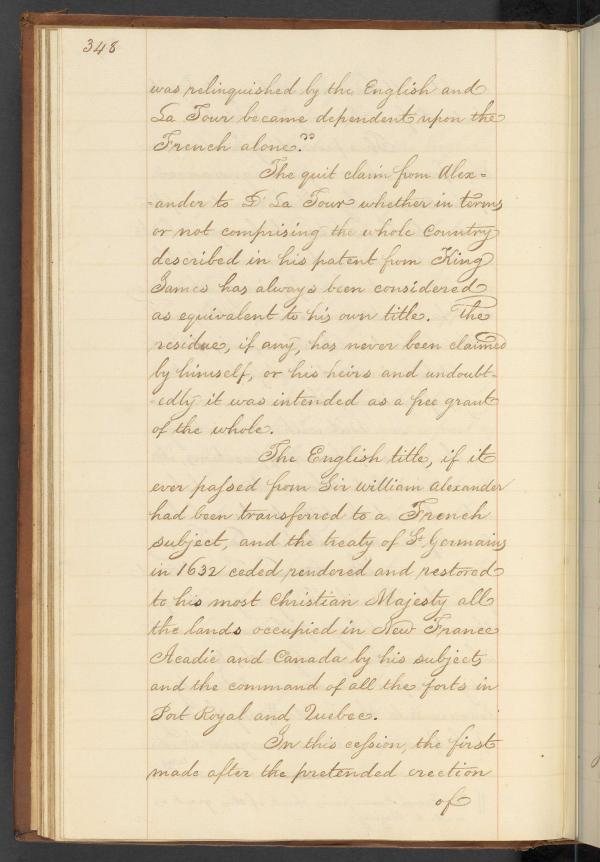 348
was relinquished by the English and
La Tour became dependent upon the
French alone."
The quit claim from Alex=
=ander to D' La Tour whether in terms
or not comprising the whole Country
described in his patent from King
James has always been considered
as equivalent to his own title. The
residue, if any, has never been claimed
by himself, or his heirs and undoubt-
-edly it was intended as a free grant
of the whole.
The English title, if it
ever passed from Sir William Alexander
had been transferred to a French
subject, and the treaty of St Germains
in 1632 ceded rendered and restored
to his most Christian Majesty all
the lands occupied in New France
Acadie and Canada by his subjects
and the command of all the forts in
Port Royal and Quebec.
In this cession, the first
made after the pretended erection
of